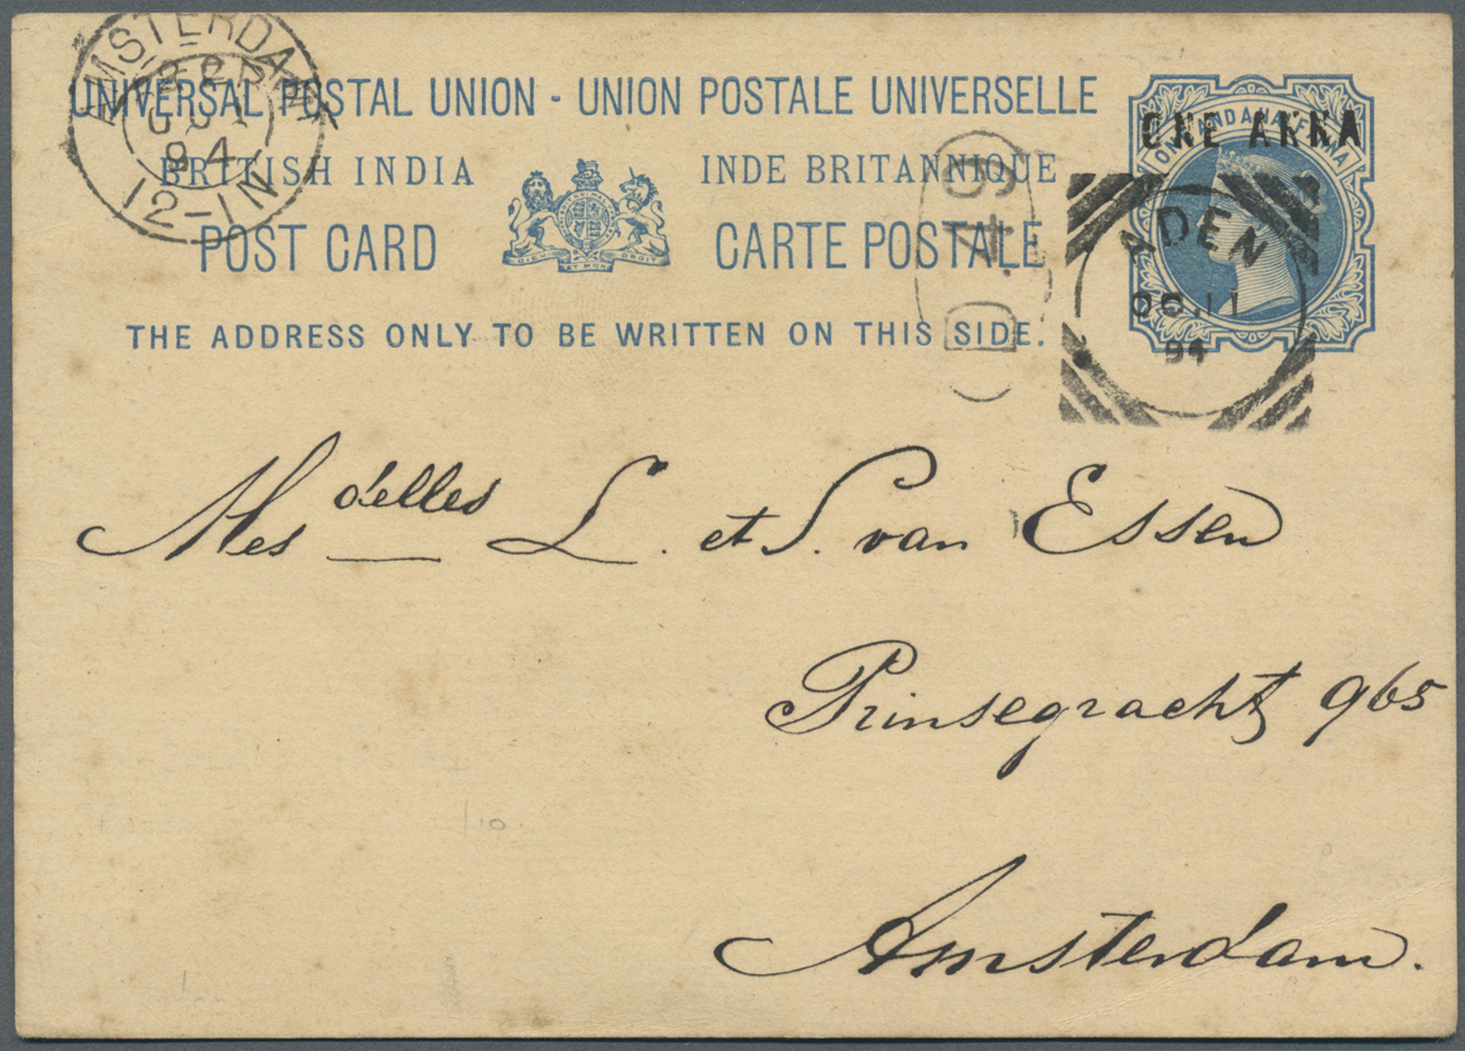 AMSTERDAM
22
OCT
94
12-1N
UNIVERSAL POSTAL UNION - UNION POSTALE UNIVERSELLE
BRITISH INDIA INDE BRITANNIQUE
POST CARD CARTE POSTALE
THE ADDRESS ONLY TO BE WRITTEN ON THIS SIDE.
DIEU ET MON DROIT
ONE AND A HALF ANNA
ONE ANNA
D.49
ADEN
OC.11
94
Mesdelles L. et S. van Essen
Prinsegracht 965
Amsterdam.